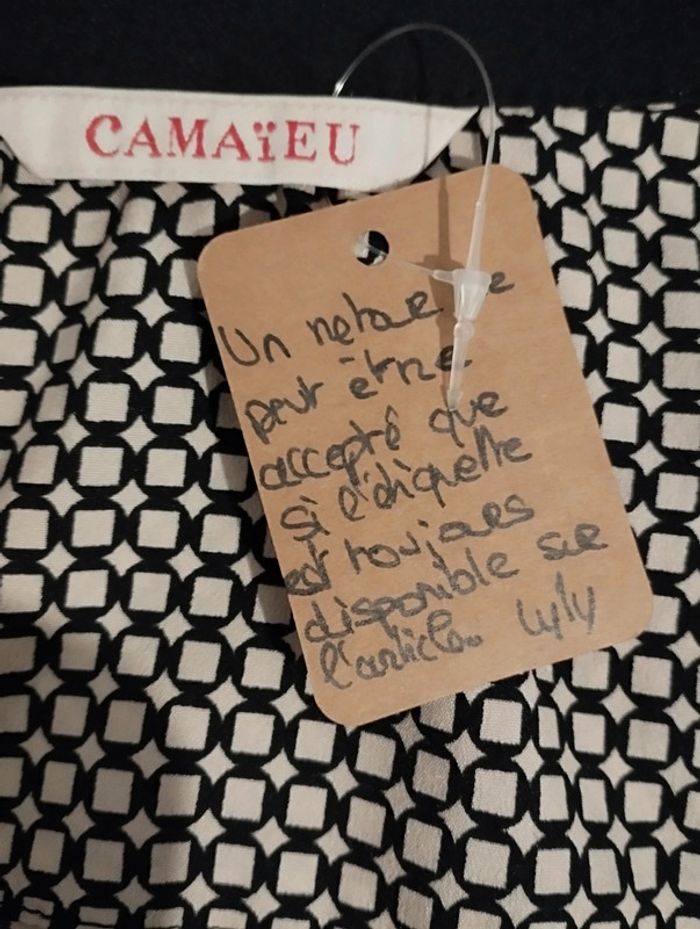 CAMAÏEU
Un retour
peut être
accepté que
si l'étiquette
est toujours
disponible sur
l'article. Lyly